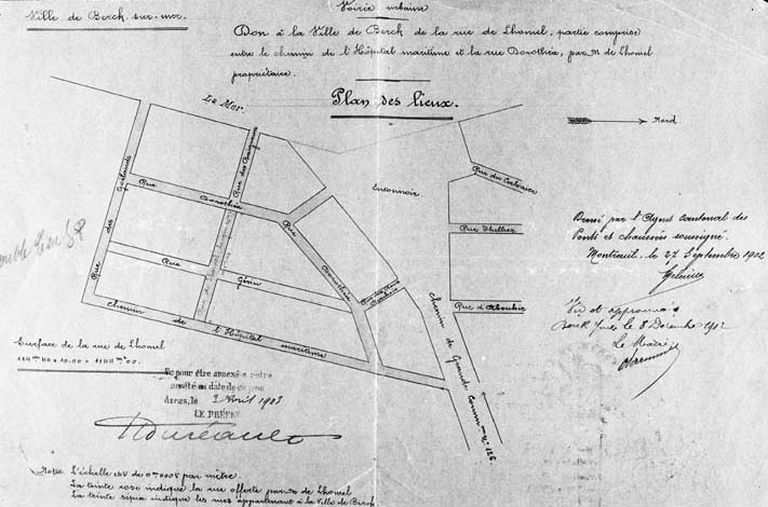 Ville de Berck-sur-mer.
Voirie urbaine
Don à la Ville de Berck de la rue de Lhomel, partie comprise
entre le chemin de l'Hôpital maritime et la rue Dorothéa, par M. de Lhomel
propriétaire.
Plan des lieux.
La Mer.
Nord
Entonnoir
Rue des Baigneurs
Rue du Calvaire
Rue des Goëlands
Rue Dorothéa
Rue Dorothéa
Rue Thellier
Rue Génin
Rue d'Aboukir
Rue des
Chemin de l'Hôpital maritime
Chemin de Grande Comm. n° 126.
Dressé par l'Agent cantonal des
Ponts et chaussées soussigné.
Montreuil, le 27 Septembre 1902
Vu et approuvé
le 8 Décembre 1902
Le Maire
Surface de la rue de Lhomel
Vu pour être annexé à notre
arrêté en date de ce jour
Arras, le 1 Avril 1903
LE PRÉFET
Nota: L'échelle est de 0m0005 par mètre.
La teinte rose indique la rue offerte par M. de Lhomel
La teinte sépia indique les rues appartenant à la Ville de Berck